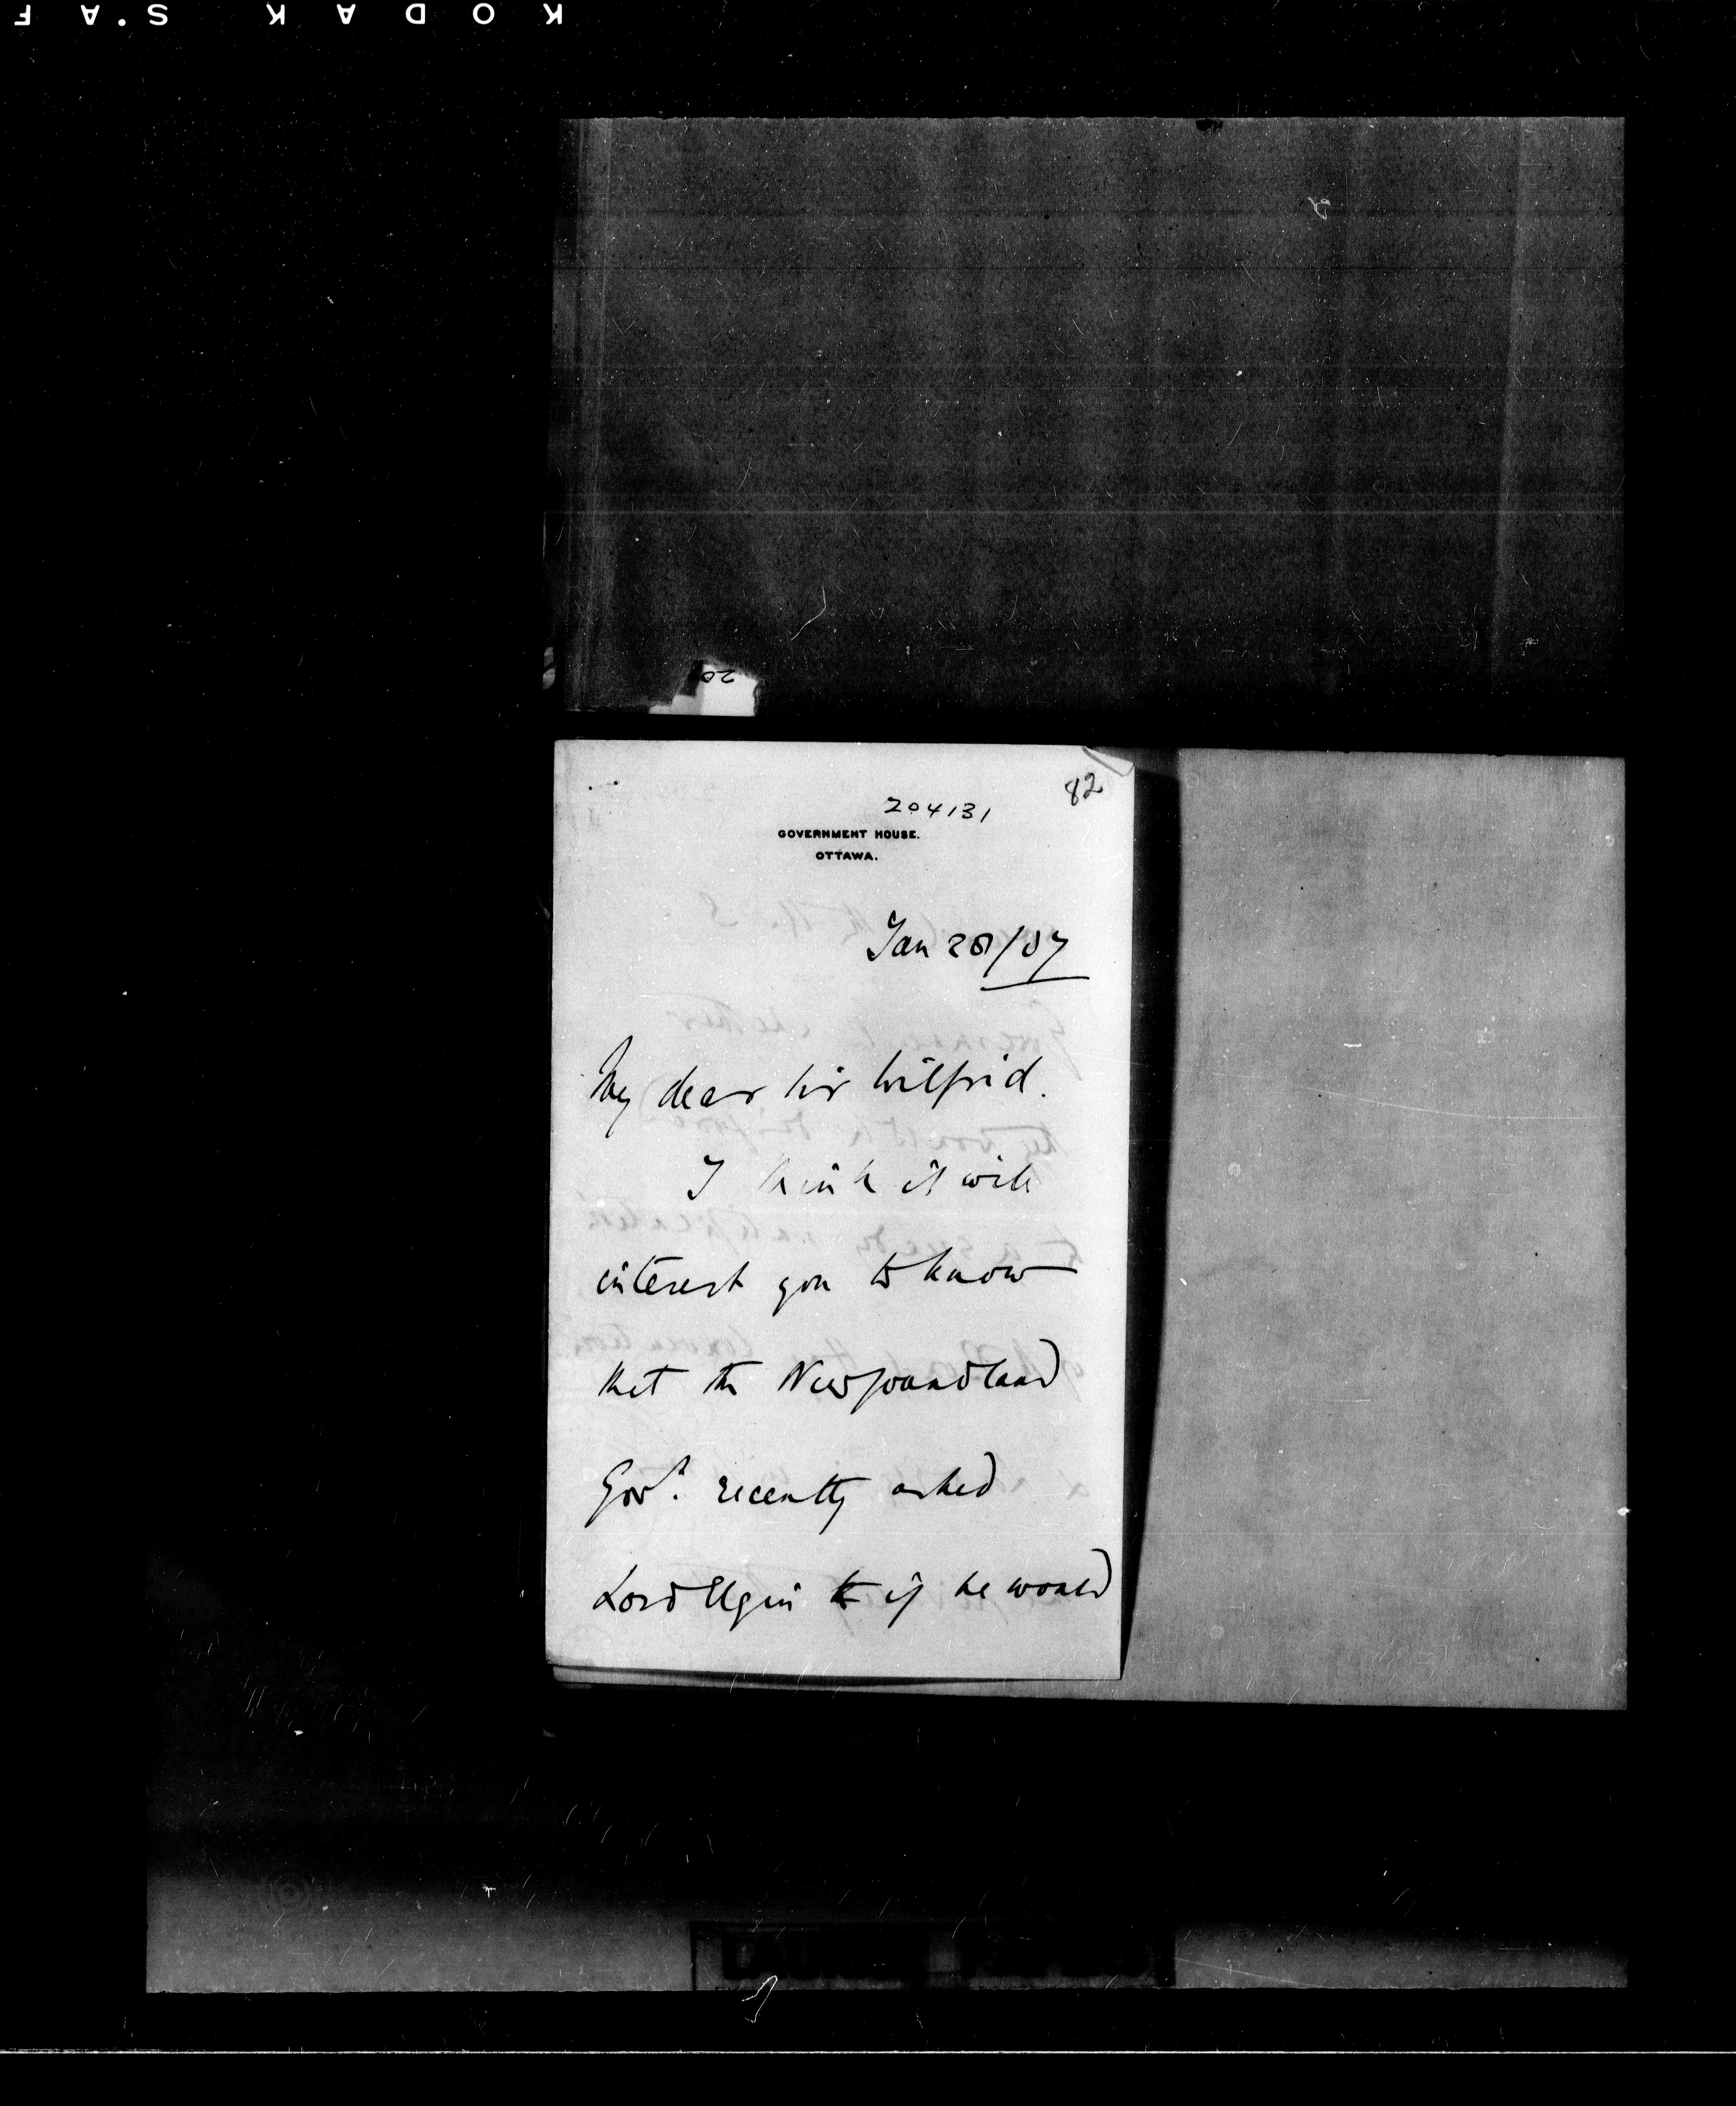 KODAK S.A F
82
204131
GOVERNMENT HOUSE.
OTTAWA.
Jan 28/07
My dear Sir Wilfrid.
I think it will
interest you to know
that the Newfoundland
Govt. recently asked
Lord Elgin if he would